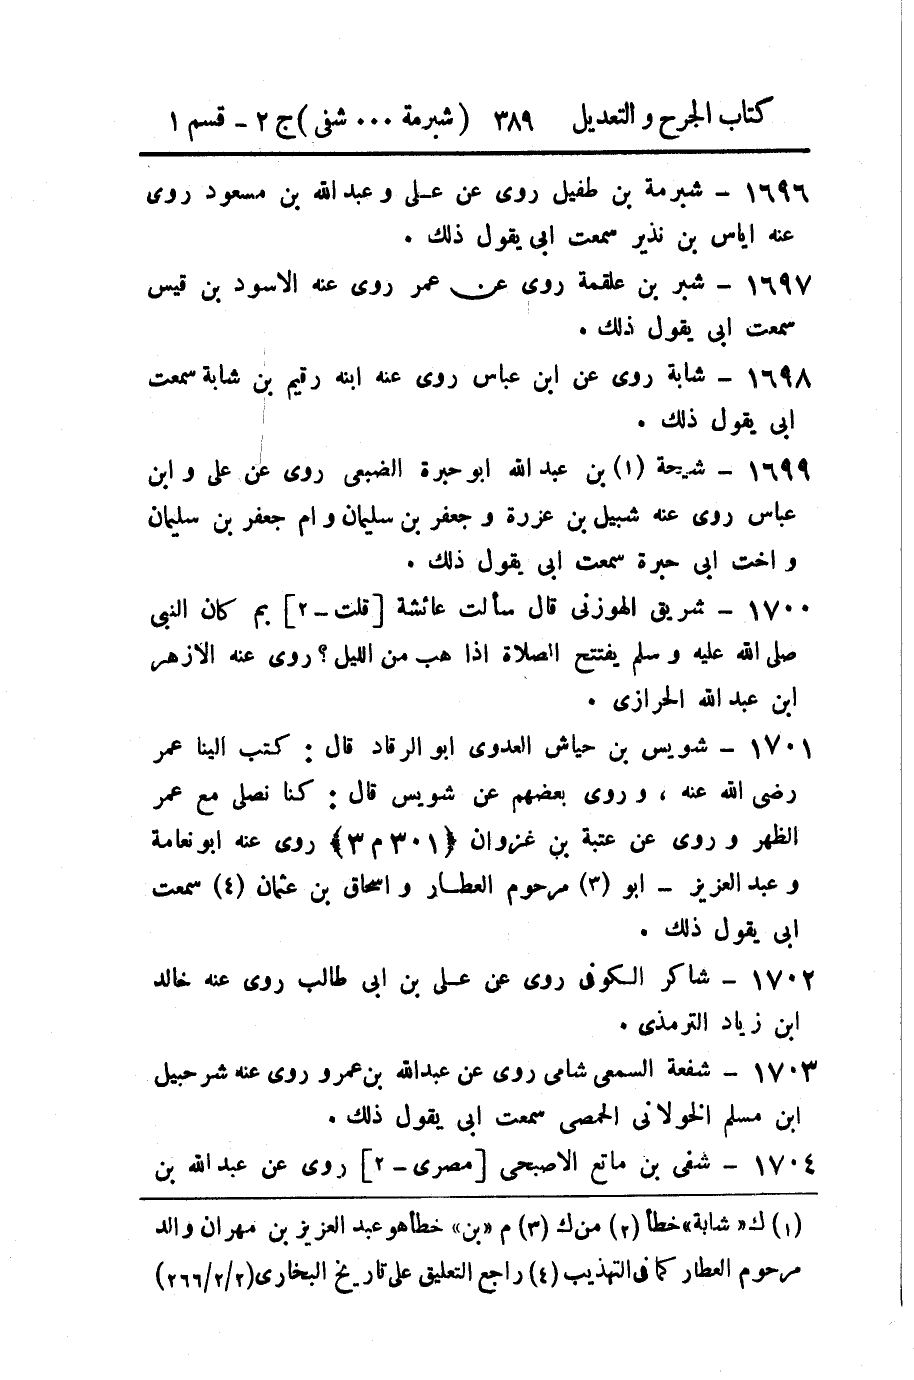 كتاب الجرح و التعديل ٣٨٩ (شبرمة ... شفى) ج ٢ - قسم ١
١٦٩٦ - شبرمة بن طفيل روى عن عـلى و عبد الله بن مسعود روى
عنه اياس بن نذير سمعت ابى يقول ذلك .
١٦٩٧ - شبر بن علقمة روى عن عمر روى عنه الاسود بن قيس
سمعت ابى يقول ذلك .
١٦٩٨ - شابة روى عن ابن عباس روى عنه ابنه رقيم بن شابة سمعت
ابى يقول ذلك .
١٦٩٩ - شيحة (١) بن عبد الله ابو حبرة الضبعى روى عن على و ابن
عباس روى عنه شبيل بن عزرة و جعفر بن سليمان و ام جعفر بن سليمان
و اخت ابى حبرة سمعت ابى يقول ذلك .
١٧٠٠ - شريق الهوزنى قال سألت عائشة [قلت - ٢] بم كان النبى
صلى الله عليه و سلم يفتتح الصلاة اذا هب من الليل ؟ روى عنه الازهر
ابن عبد الله الحرازى .
١٧٠١ - شويس بن حياش العدوى ابو الرقاد قال : كتب الينا عمر
رضى الله عنه ، و روى بعضهم عن شويس قال : كنا نصلى مع عمر
الظهر و روى عن عتبة بن غزوان {٣٠١ م ٣} روى عنه ابو نعامة
و عبد العزيز - ابو (٣) مرحوم العطـار و اسحاق بن عثمان (٤) سمعت
ابى يقول ذلك .
١٧٠٢ - شاكر الـكوفى روى عن عـلى بن ابى طالب روى عنه خالد
ابن زياد الترمذى .
١٧٠٣ - شفعة السمعى شامى روى عن عبد الله بن عمرو روى عنه شرحبيل
ابن مسلم الخولانى الحمصى سمعت ابى يقول ذلك .
١٧٠٤ - شفى بن ماتع الاصبحى [مصرى - ٢] روى عن عبد الله بن
(١) ك « شابة » خطأ (٢) من ك (٣) م « بن » خطأ هو عبد العزيز بن مهران والد
مرحوم العطار كما فى التهذيب (٤) راجع التعليق على تاريخ البخارى (٢٦٦/٢/٢)